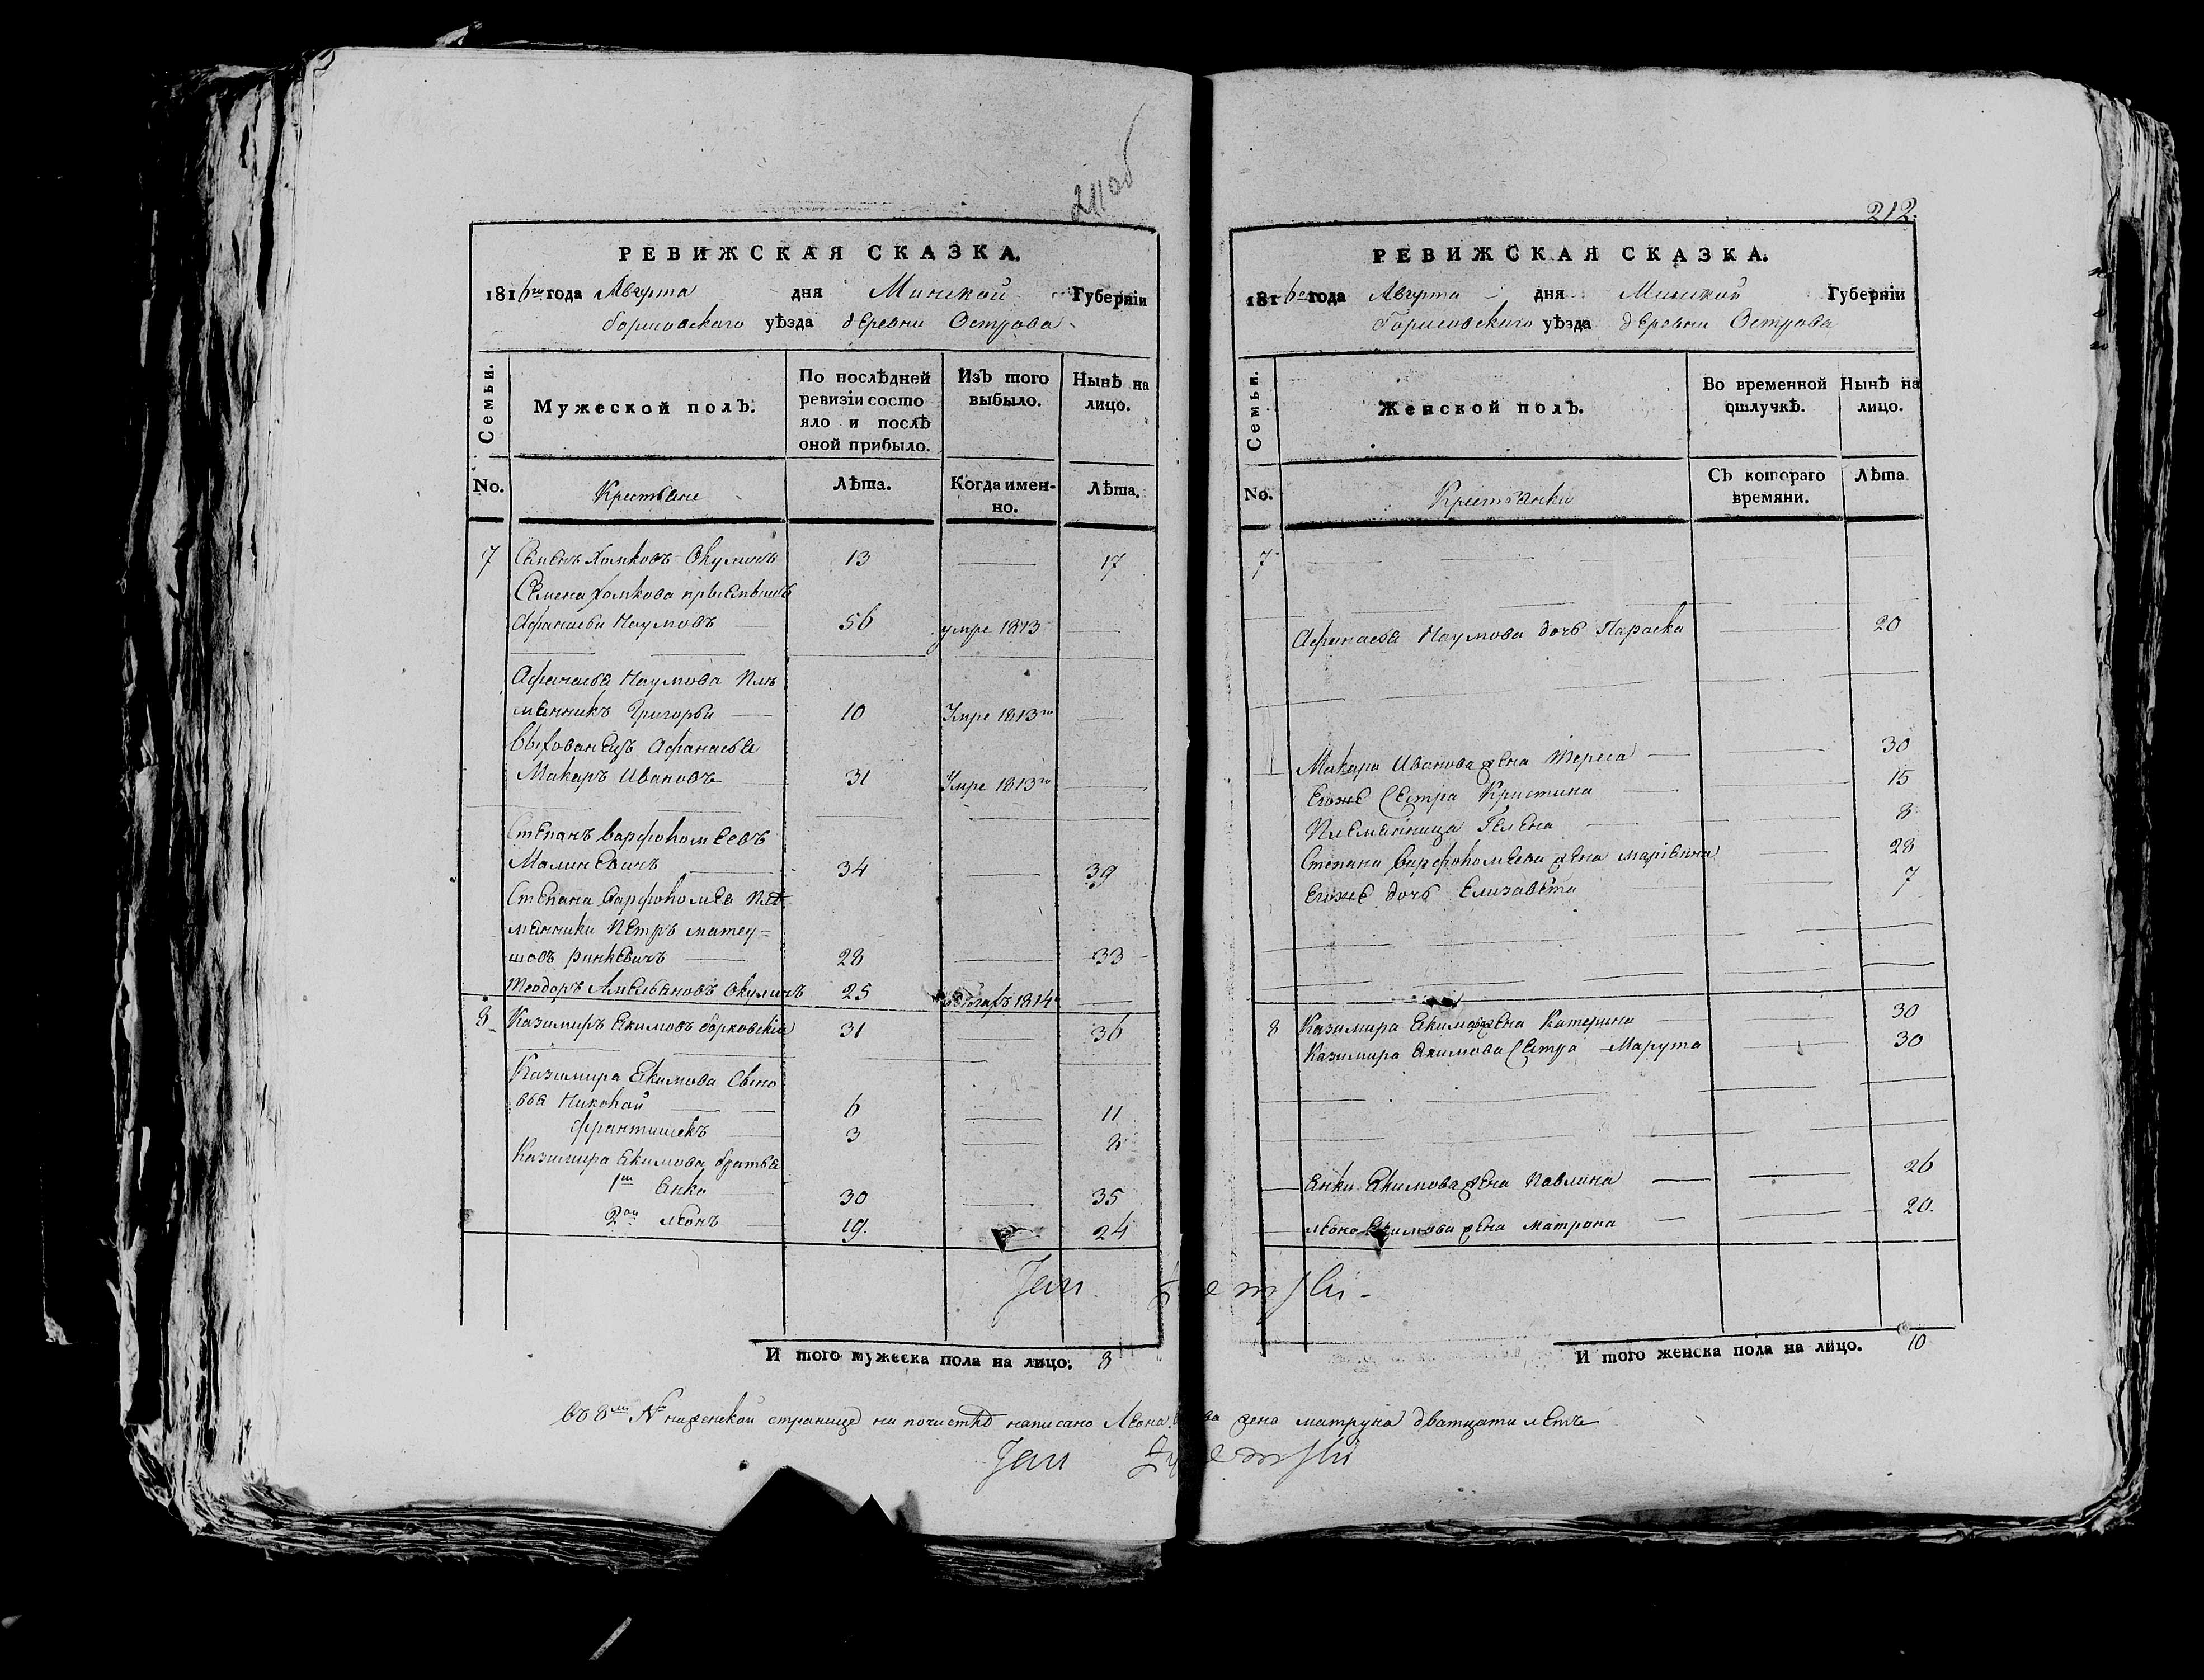 211об
РЕВИЖСКАЯ СКАЗКА.
1816го года Августа дня Минской Губерніи
Борисовского уѣзда деревни Острова
Семьи.
Мужеской полъ.
По послѣдней ревизіи состо
яло и послѣ оной прибыло.
Изъ того выбыло.
Нынѣ на лицо.
No.
Крестьяне
Лѣта.
Когда имен-
но.
Лѣта.
7 Семенъ Хомковъ Окуличъ 13 17
Семена Хомкова пріемышъ
Афанасьи Наумовъ 56 умре 1813
Афанасья Наумова пле
мянникъ Григорьи 10 Умре 1813го
Выхованецъ Афанасья
Макаръ Ивановъ 31 Умре 1813го
Степанъ Варфоломеевъ
Малиневичъ 34 39
Степана Варфоломея пле
мянники Петръ матеу=
шовъ ринкевичъ 28 33
Теодоръ Амельяновъ Окуличъ 25 1814
8 Казимиръ Якимовъ борковскіи 31 36
Казимира Якимова Сыно
вья Николай 6 11
францишекъ 3 8
Казимира Якимова братья
1й Янко 30 35
2ой леонъ 19. 24
Jan
И того мужеска пола на лицо. 8
212.
РЕВИЖСКАЯ СКАЗКА.
1816го года Августа дня Минской Губерніи
Борисовского уѣзда деревни Острова
Семьи.
Женской полъ.
Во временной отлучкѣ.
Нынѣ на лицо.
No.
Крестьянки
Съ котораго времяни.
Лѣта.
7
Афанасья Наумова дочь Параска 20
Макара Иванова жена тереса 30
Егоже Сестра Кристина 15
Племянница Гелена 8
Степана Варфоломеева жена маріянна 28
Егоже дочь Елизавета 7
8 Казимира Якимова жена Катерина 30
Казимира Якимова Сестра Марута 30
Янки Якимова жена Павлина 26
леона Якимова жена матрона 20.
И того женска пола на лицо. 10
въ 8мъ № на женской странице на почистке написано Леона жена матруна дватцати летъ
Jan